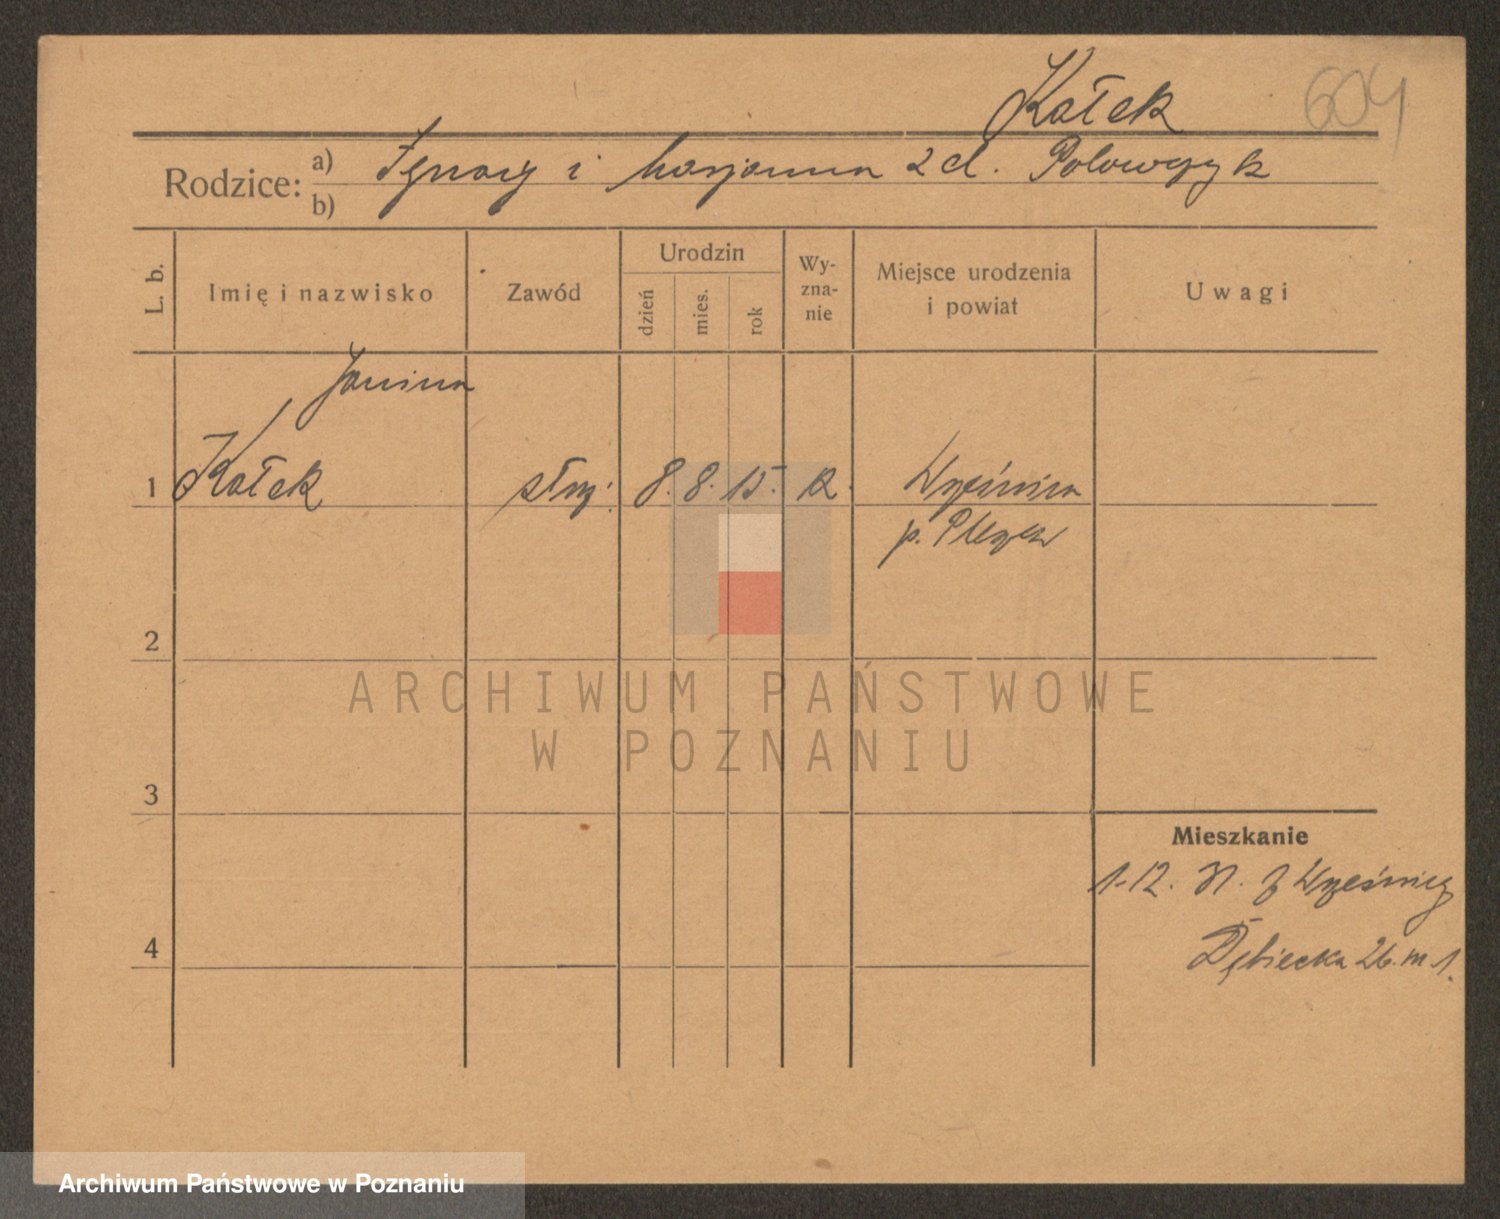 Kołek
604
Rodzice: a) Ignacy i Marjanna z d. Polowczyk
b)
L. b. Imię i nazwisko Zawód Urodzin dzień mies. rok Wy-zna-nie Miejsce urodzenia i powiat Uwagi
Janina
1 Kołek służ. 8. 8. 15. k.
p. Pleszew
2
ARCHIWUM PAŃSTWOWE
W POZNANIU
3
Mieszkanie
1-12. 31. z
4 Dębiecka 26. m 1.
Archiwum Państwowe w Poznaniu